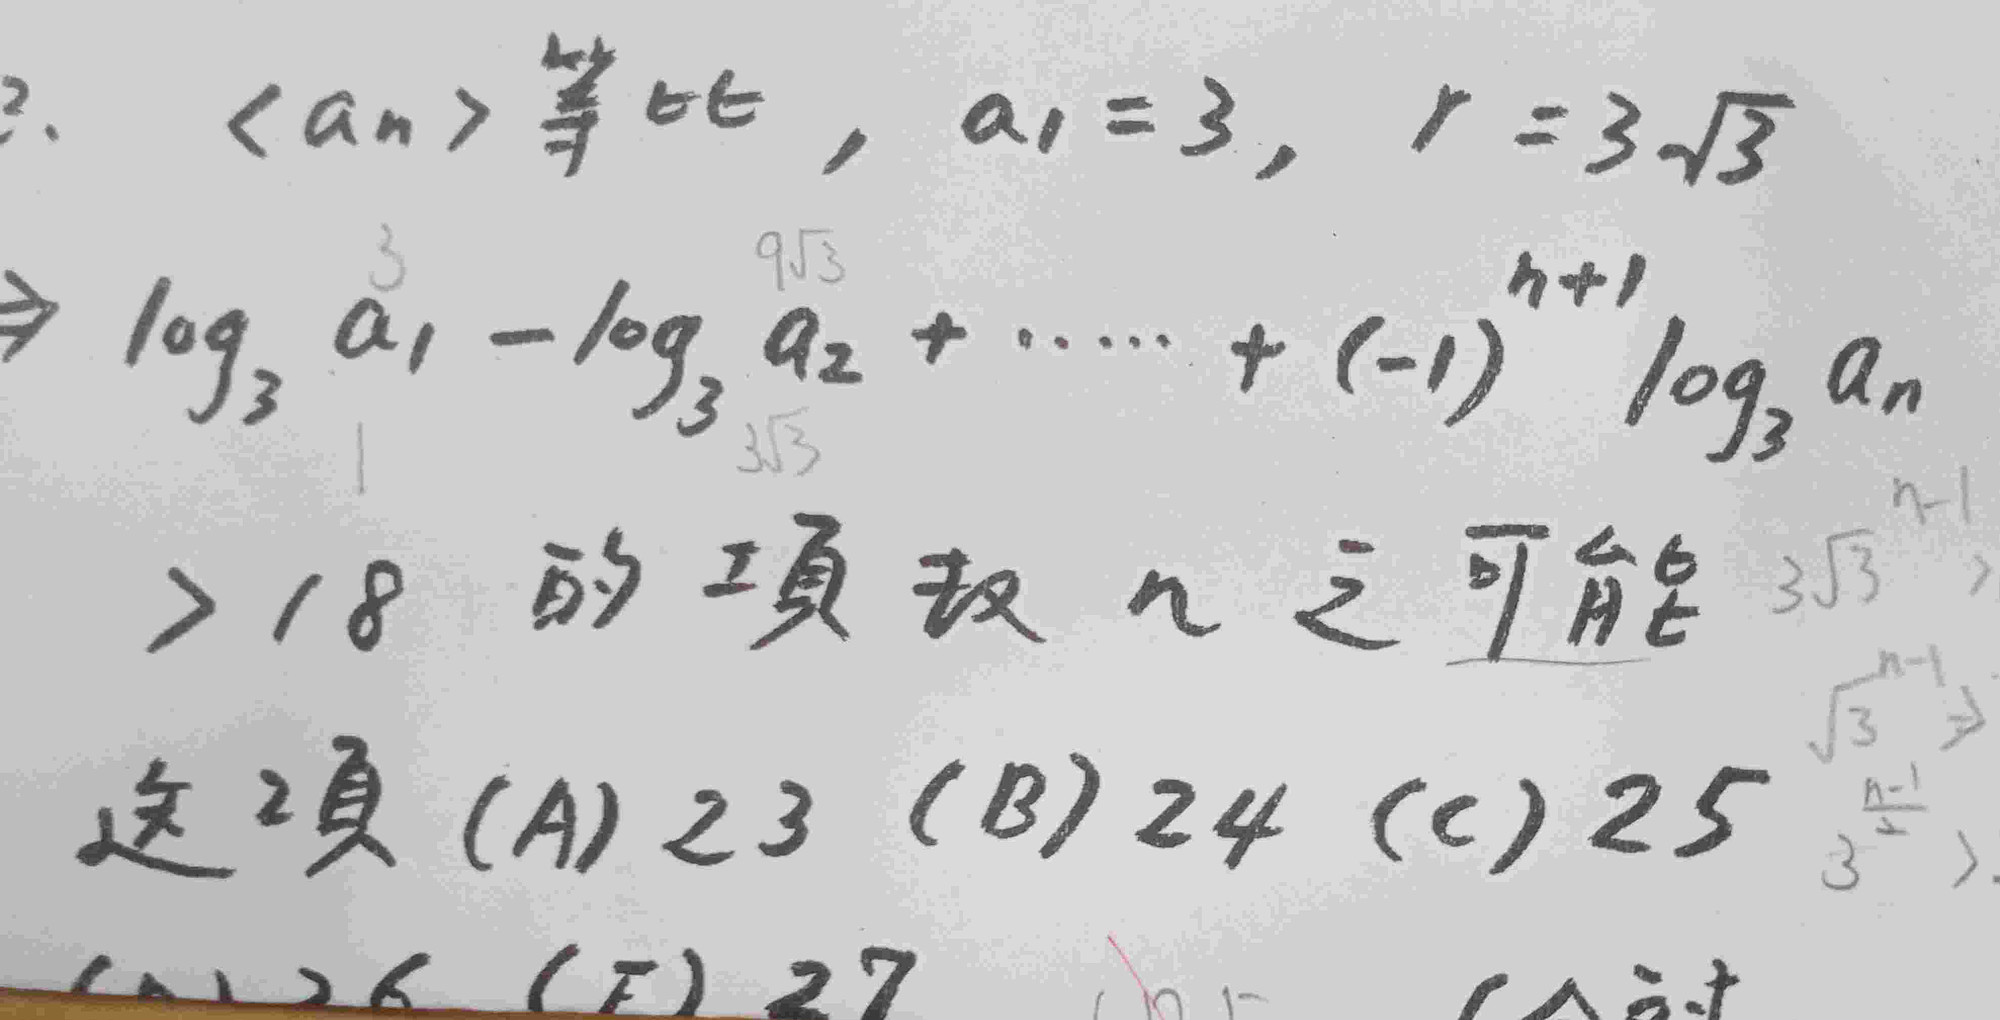 2. <an> 等比, a1 = 3, r = 3√3
3 9√3
⇒ log3 a1 - log3 a2 + ..... + (-1)^n+1 log3 an
1 3√3
> 18 的項敉 n 之可能 3√3^n-1 >
√3^n-1 ⇒
这2項 (A) 23 (B) 24 (C) 25 3^(n-1)/2 >
(D) 26 (E) 27